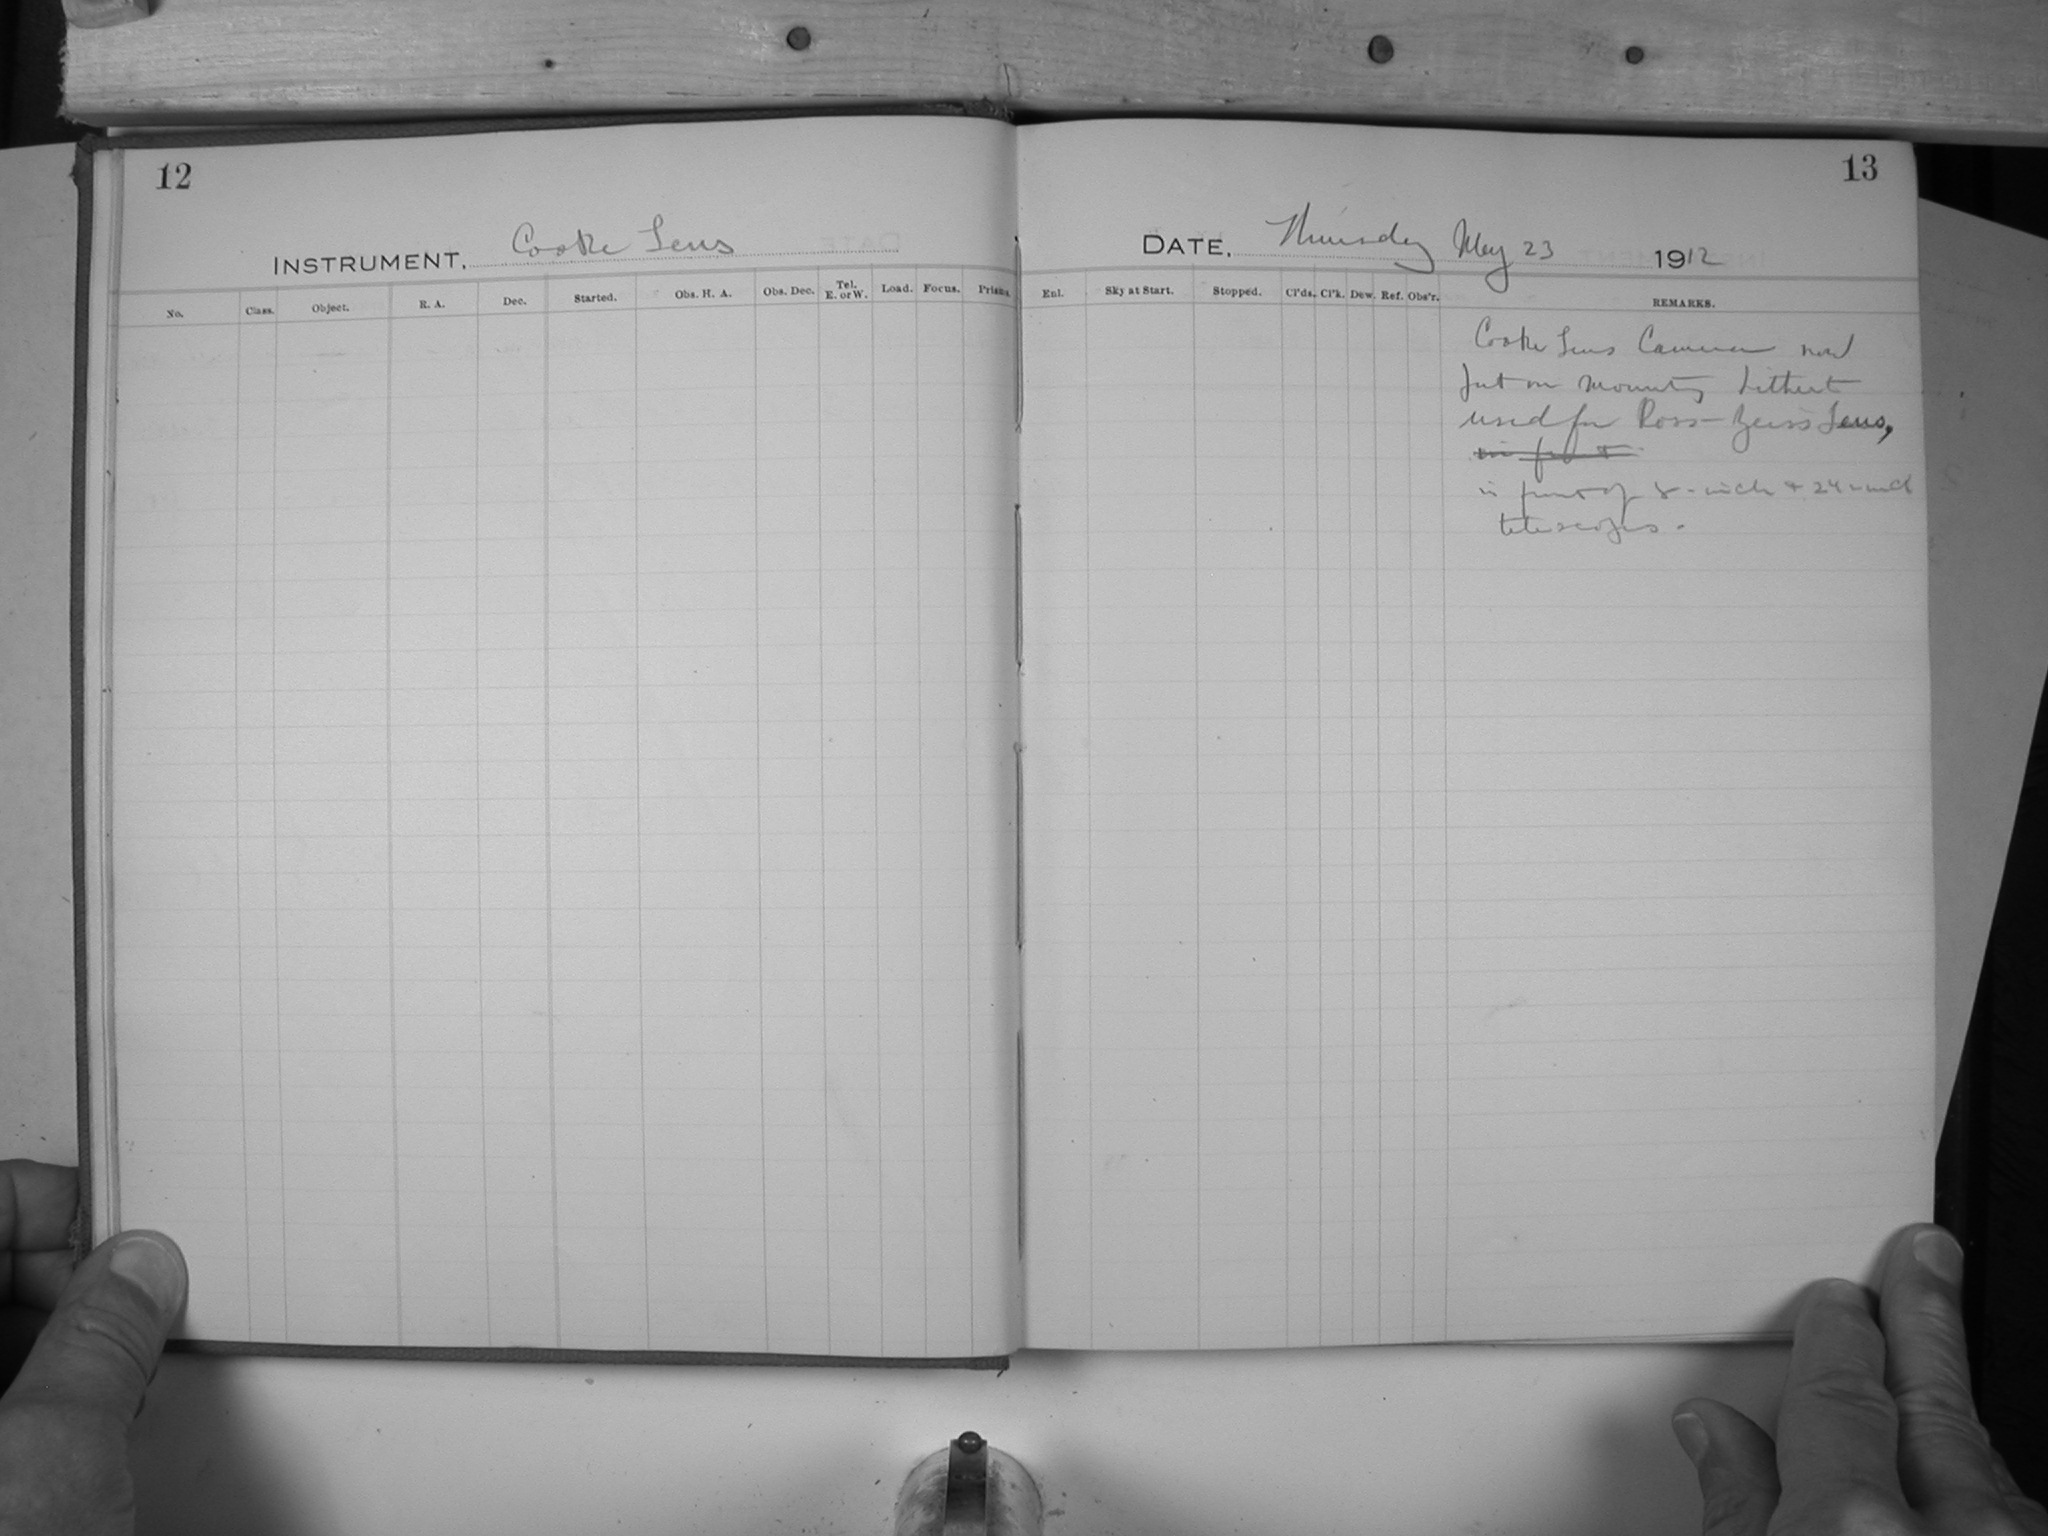 12
INSTRUMENT, Cooke Lens
No. Class. Object. R. A. Dec. Started. Obs. H. A. Obs. Dec. Tel. E. or W. Load. Focus. Prisms
13
DATE, Thursday May 23 1912
Exl. Sky at Start. Stopped. Cl'ds. Cl'k. Dew. Ref. Obs'r. REMARKS.
Cooke Lens Camera now
put on mounting hitherto
used for Ross-Zeiss Lens,
in front
in front of 8-inch + 24-inch
telescopes.